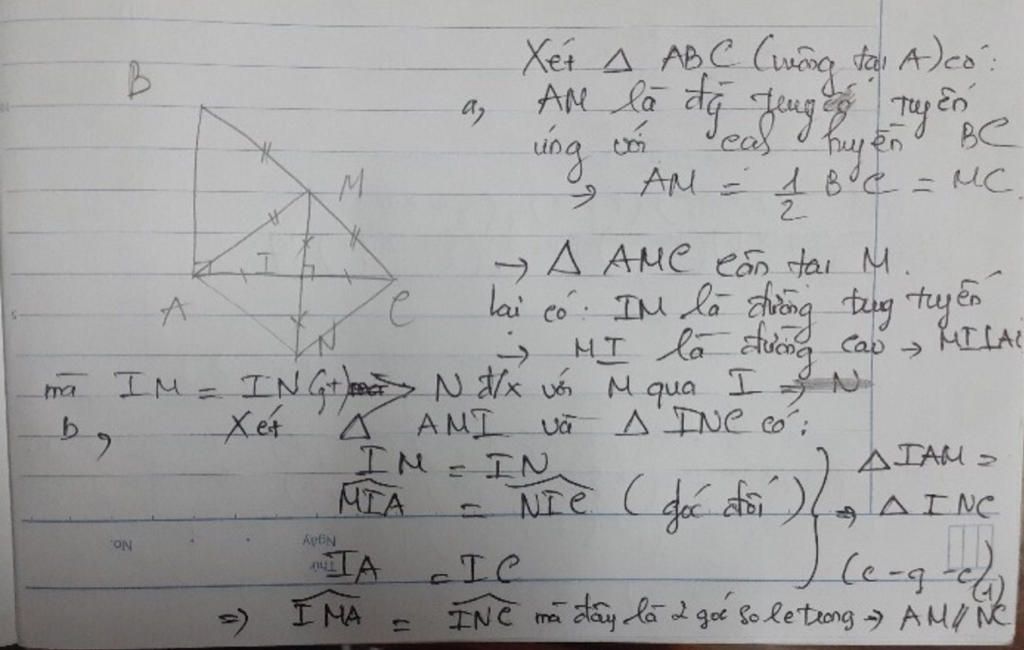 Xét Δ ABC (vuông tại A) có:
a, AM là đg trung tuyến
ứng với cạh huyền BC
→ AM = 1/2 BC = MC
→ Δ AMC cân tại M.
lại có: IM là đường tug tuyến
→ MI là đường cao → MI⊥AC
mà IM = IN (gt) → N đ/x với M qua I
b, Xét Δ AMI và Δ INC có:
IM = IN
MIA = NIC (góc đối)
IA = IC
⇒ Δ IAM = Δ INC (c-g-c) (1)
⇒ IMA = INC mà đây là 2 góc so le trong → AM // NC
B
M
I
A
C
N
No.
Ngày
Thứ